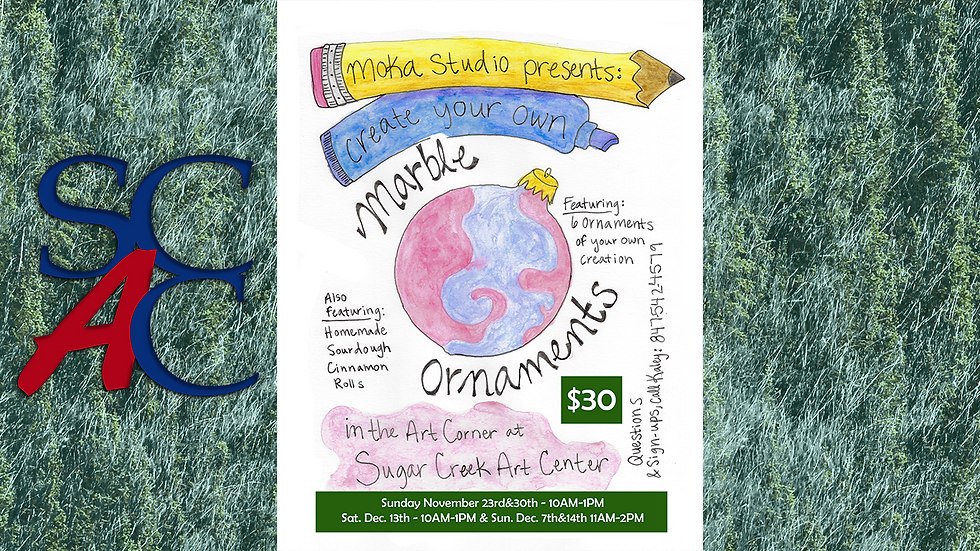 SCC
AC
Moka Studio presents:
create your own
Marble
Ornaments
Featuring:
6 Ornaments
of your own
creation
Also
featuring:
Homemade
Sourdough
Cinnamon
Rolls
$30
Questions
& Sign-ups, call
in the Art Corner at
Sugar Creek Art Center
Sunday November 23rd&30th - 10AM-1PM
Sat. Dec. 13th - 10AM-1PM & Sun. Dec. 7th&14th 11AM-2PM